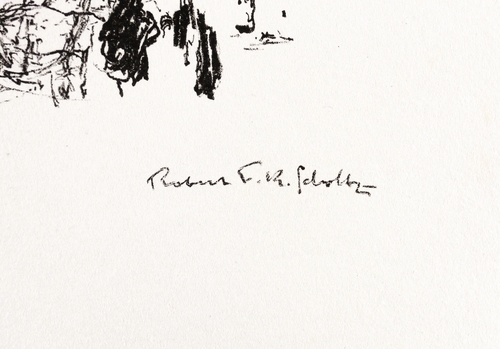 Robert F. K. Scholtz